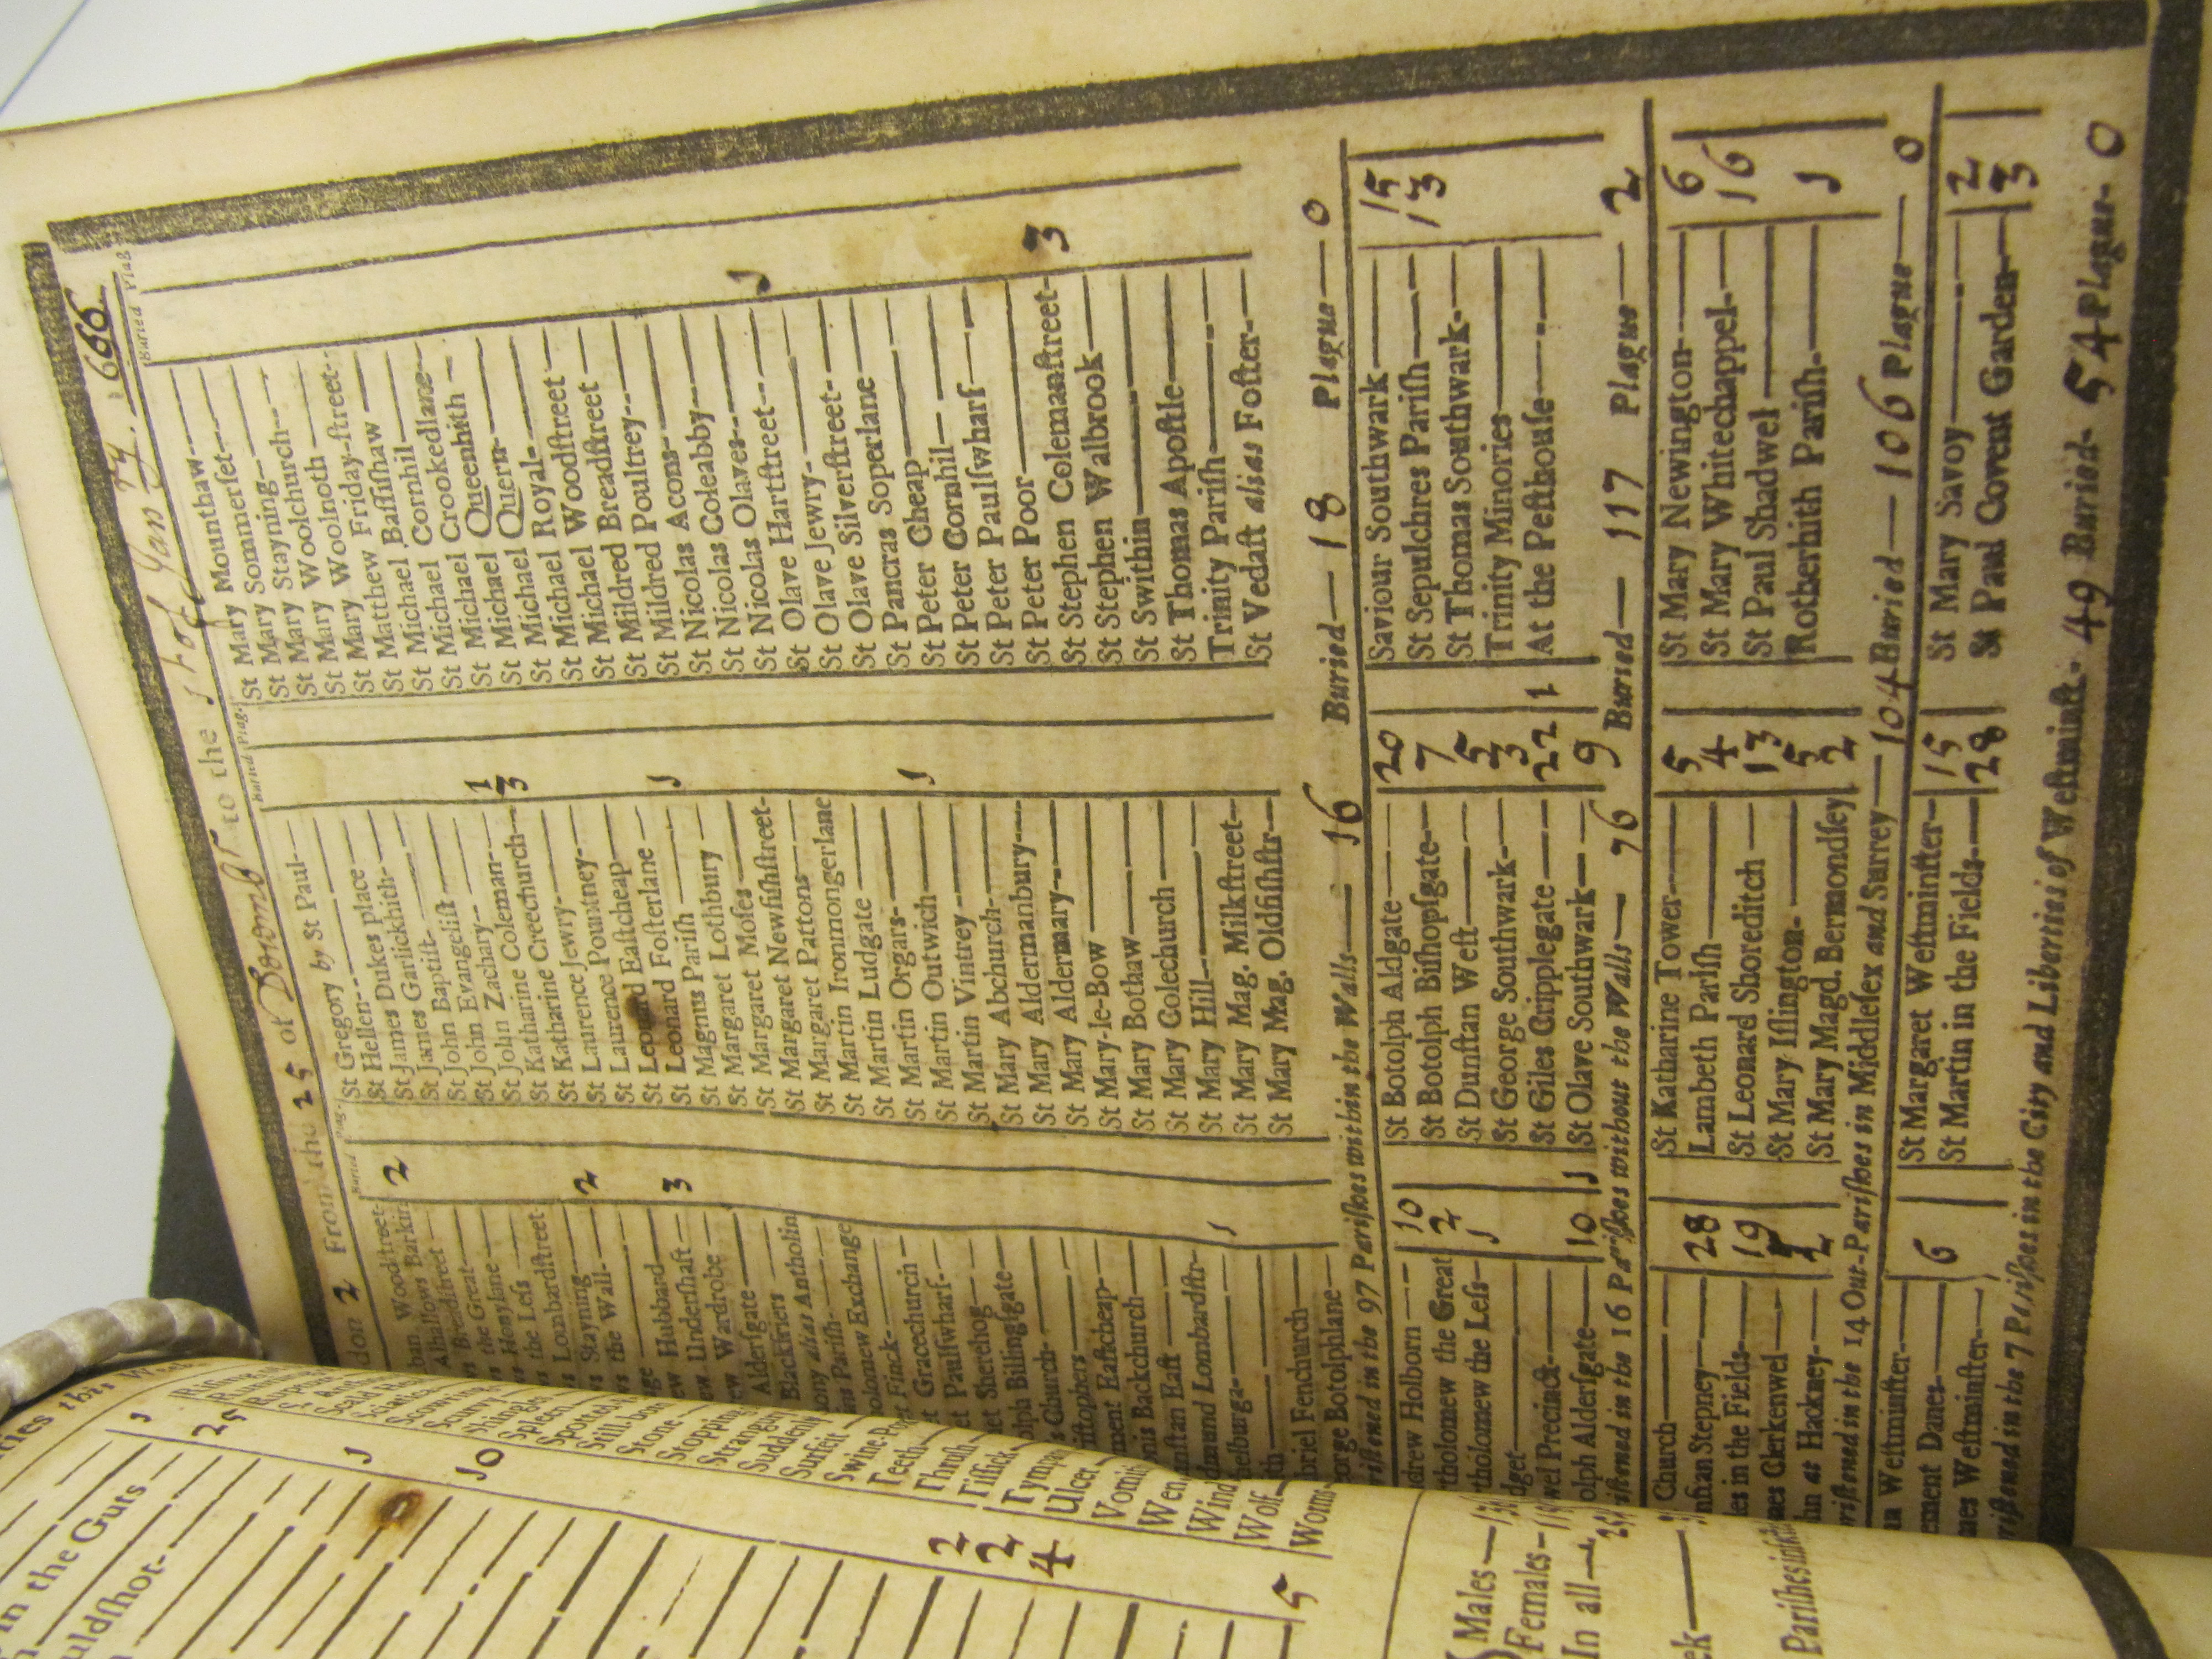 don 2 From the 25 of Decemb^r to the 1 st of Jan^ry. 1666
Buried Plag.
Buried Plag.
Buried Plag
ban Woodstreet- 2
Alhallows Barkin
s Breadstreet
s the Great
s Honylane
s the Less
s Lombardstreet
s Stayning 2
s the Wall
ge
ew Hubbard 3
ew Undershaft
ew Wardrobe
Aldersgate
Blackfriers
ony alias Antholin
ins Parish
olomew Exchange
et Finck
et Gracechurch
et Paulswharf
et Sherehog
olph Billingsgate
s Church
istophers
ment Eastcheap
nis Backchurch
nstan East
mund Lombardstr
helburga 1
th
briel Fenchurch
orge Botolphlane
St Gregory by St Paul
St Hellen
St James Dukes place
St James Garlickhith
St John Baptist
St John Evangelist
St John Zachary 1
St Katharine Coleman 3
St Katharine Creechurch
St Katharine Jewry
St Laurence Jewry
St Laurence Pountney
St Leonard Eastcheap
St Leonard Fosterlane 1
St Magnus Parish
St Margaret Lothbury
St Margaret Moses
St Margaret Newfishstreet
St Margaret Pattons
St Martin Ironmongerlane
St Martin Ludgate
St Martin Orgars
St Martin Outwich 1
St Martin Vintrey
St Mary Abchurch
St Mary Aldermanbury
St Mary Aldermary
St Mary-le-Bow
St Mary Bothaw
St Mary Colechurch
St Mary Hill
St Mary Mag. Milkstreet
St Mary Mag. Oldfishstr
St Mary Mounthaw
St Mary Sommerset
St Mary Stayning
St Mary Woolchurch
St Mary Woolnoth
St Matthew Friday-street
St Michael Bassishaw
St Michael Cornhil
St Michael Crookedlane
St Michael Queenhith
St Michael Quern
St Michael Royal
St Michael Woodstreet
St Mildred Breadstreet
St Mildred Poultrey
St Nicolas Acons
St Nicolas Coleabby
St Nicolas Olaves
St Olave Hartstreet 1
St Olave Jewry
St Olave Silverstreet
St Pancras Soperlane
St Peter Cheap
St Peter Cornhil
St Peter Paulswharf
St Peter Poor
St Stephen Colemanstreet 3
St Stephen Walbrook
St Swithin
St Thomas Apostle
Trinity Parish
St Vedast alias Foster
ristened in the 97 Parishes within the Walls— 16 Buried— 18 Plague— 0
drew Holborn 10
rtholomew the Great 2
rtholomew the Less 1
idget
wel Precinct
olph Aldersgate 10 1
St Botolph Aldgate 20
St Botolph Bishopsgate 7
St Dunstan West 5
St George Southwark 3
St Giles Cripplegate 22 1
St Olave Southwark 9
Saviour Southwark 15
St Sepulchres Parish 13
St Thomas Southwark
Trinity Minories
At the Pesthouse
ristened in the 16 Parishes without the Walls— 76 Buried— 117 Plague— 2
Church
nstan Stepney 28
les in the Fields 19
mes Clerkenwel
hn at Hackney 2
St Katharine Tower 5
Lambeth Parish 4
St Leonard Shoreditch 13
St Mary Islington 5
St Mary Magd. Bermondsey 2
St Mary Newington 6
St Mary Whitechappel 16
St Paul Shadwel
Rotherhith Parish 1
ristened in the 14 Out-Parishes in Middlesex and Surrey— 104 Buried— 106 Plague— 0
ement Danes 6
mes Westminster
St Margaret Westminster 15
St Martin in the Fields 28
St Mary Savoy 2
St Paul Covent Garden 3
ristened in the 7 Parishes in the City and Liberties of Westminst. 49 Buried- 54 Plague- 0
in the Guts 1
uldshot- 25
1
10
2
2
4
5
Spleen
Stone
Stopping
Suddenly
Surfeit
Teeth
Thrush
Tissick
Ulcer
Wen
Wind
Wolf
Worms
Males
Females
In all
ek
Parishes